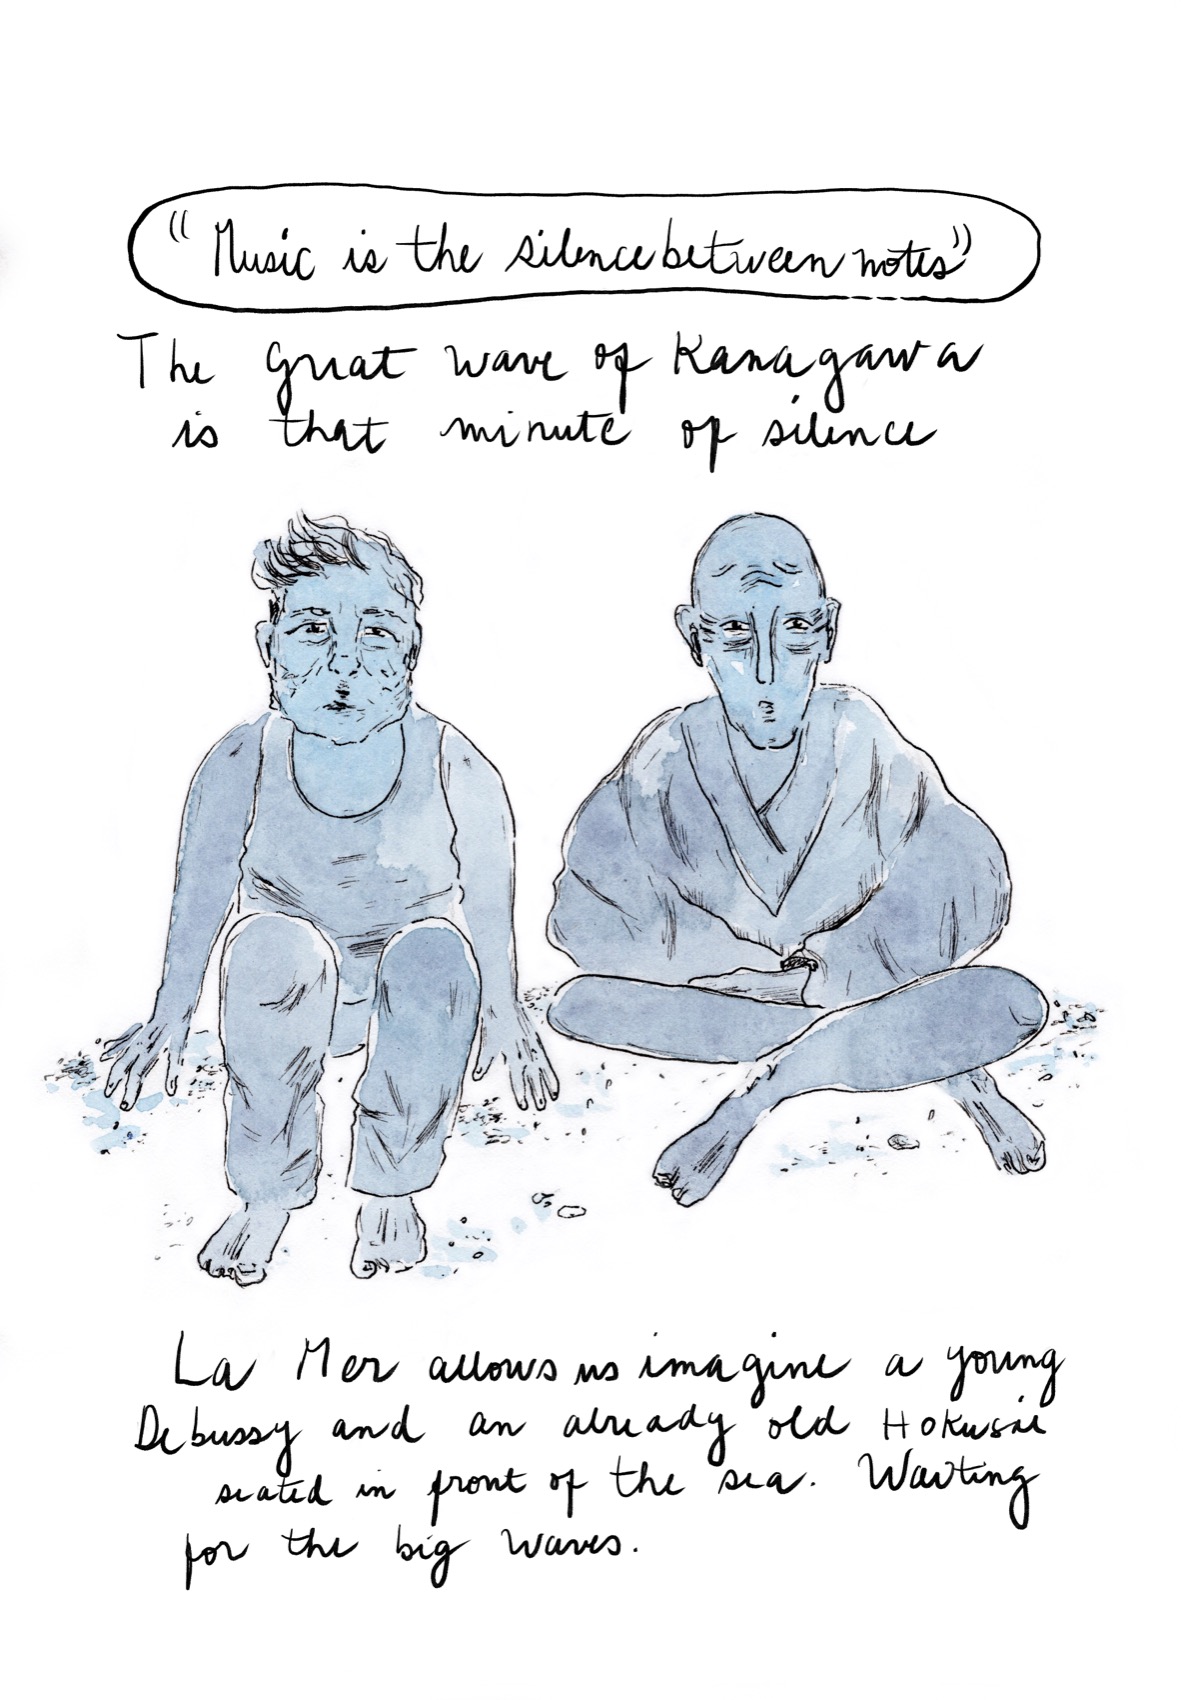 "Music is the silence between notes"
The great wave of Kanagawa
is that minute of silence
La Mer allows us imagine a young
Debussy and an already old Hokusai
seated in front of the sea. Waiting
for the big waves.